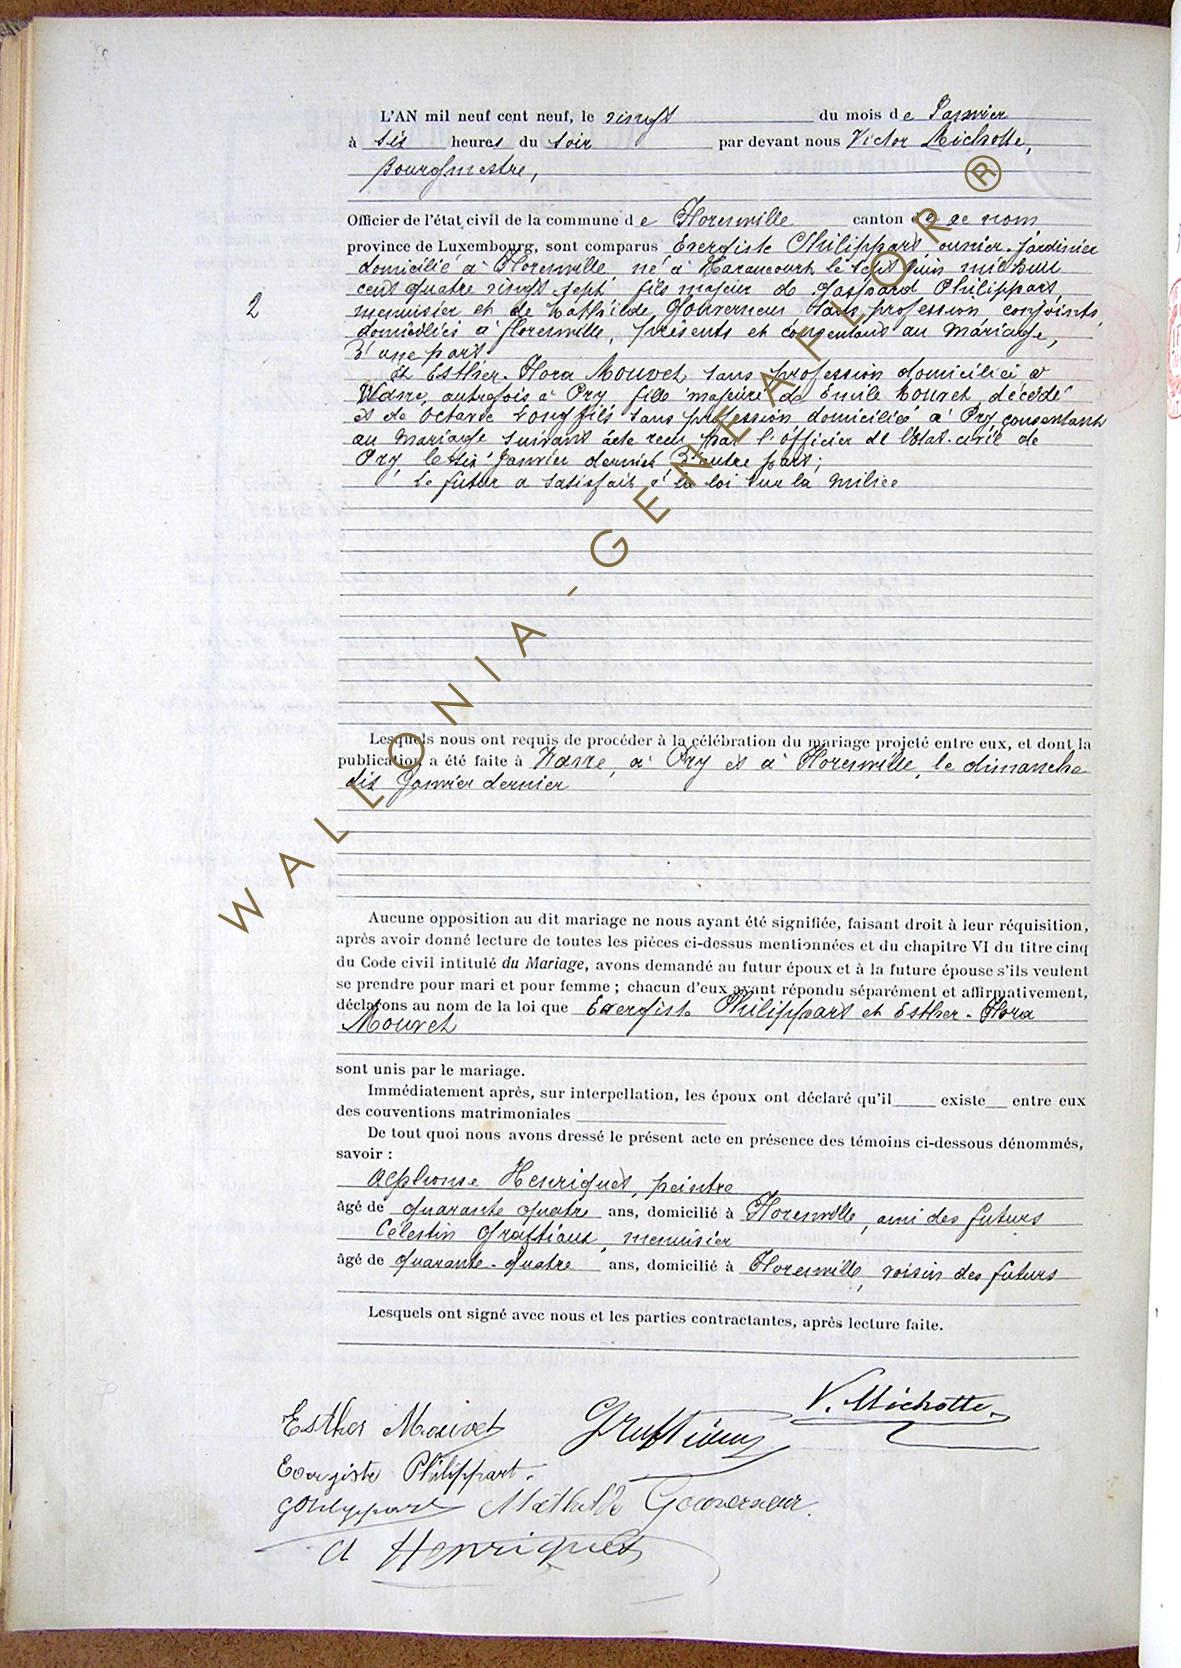 L'AN mil neuf cent neuf, le vingt du mois de Janvier
à six heures du soir par devant nous Victor Michotte,
Bourgmestre,
Officier de l'état civil de la commune de Florenville canton de ce nom
province de Luxembourg, sont comparus Evergiste Philippart, ouvrier-jardinier
domicilié à Florenville, né à Haraucourt le sept Juin mil huit
cent quatre vingt sept fils majeur de Gaspard Philippart,
2
menuisier et de Mathilde Gouverneur, sans profession conjoints,
domiciliés à Florenville, présents et consentant au mariage,
D'une part
Et Esther-Flora Mouvet sans profession domiciliée à
Wavre, autrefois à Pry fille majeure de Emile Mouvet, décédé
et de Octavie Longfils sans profession domiciliée à Pry consentante
au mariage suivant acte reçu par l'officier de l'état-civil de
Pry le six Janvier dernier D'autre part;
Le futur a satisfait à la loi sur la milice
Lesquels nous ont requis de procéder à la célébration du mariage projeté entre eux, et dont la
publication a été faite à Wavre, à Pry et à Florenville, le dimanche
dix Janvier dernier
Aucune opposition au dit mariage ne nous ayant été signifiée, faisant droit à leur réquisition,
après avoir donné lecture de toutes les pièces ci-dessus mentionnées et du chapitre VI du titre cinq
du Code civil intitulé du Mariage, avons demandé au futur époux et à la future épouse s'ils veulent
se prendre pour mari et pour femme ; chacun d'eux ayant répondu séparément et affirmativement,
déclarons au nom de la loi que Evergiste Philippart et Esther-Flora
Mouvet
sont unis par le mariage.
Immédiatement après, sur interpellation, les époux ont déclaré qu'il existe entre eux
des couventions matrimoniales
De tout quoi nous avons dressé le présent acte en présence des témoins ci-dessous dénommés,
savoir :
Alphonse Henriquet, peintre
âgé de quarante quatre ans, domicilié à Florenville, ami des futurs
Célestin Graftiaux, menuisier
âgé de quarante-quatre ans, domicilié à Florenville, voisin des futurs
Lesquels ont signé avec nous et les parties contractantes, après lecture faite.
V. Michotte
Esther Mouvet Graftiaux
Evergiste Philippart.
GPhilippart Mathilde Gouverneur
A Henriquet
WALLONIA-GENEAFLOR®